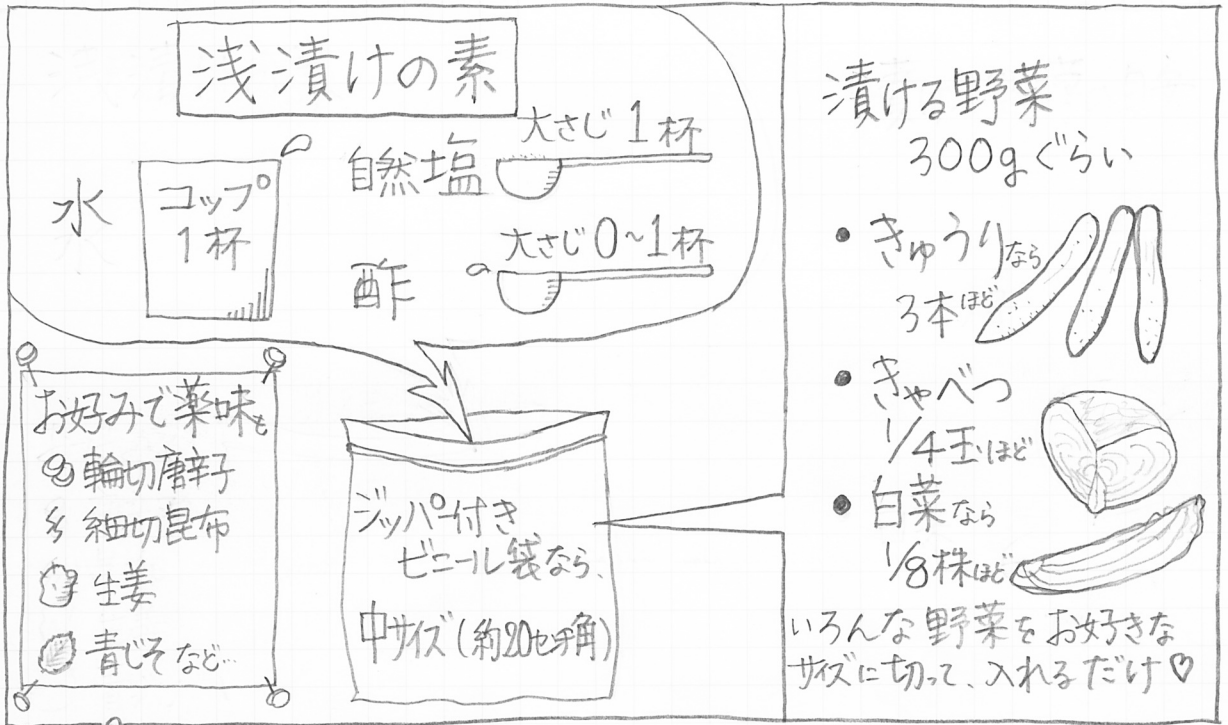 浅漬けの素
水
コップ
1杯
自然塩
大さじ1杯
酢
大さじ0~1杯
お好みで薬味も
輪切唐辛子
細切昆布
生姜
青じそなど…
ジッパー付き
ビニール袋なら、
中サイズ(約20センチ角)
漬ける野菜
300gぐらい
• きゅうりなら
3本ほど
• きゃべつ
1/4玉ほど
• 白菜なら
1/8株ほど
いろんな野菜をお好きな
サイズに切って、入れるだけ♡